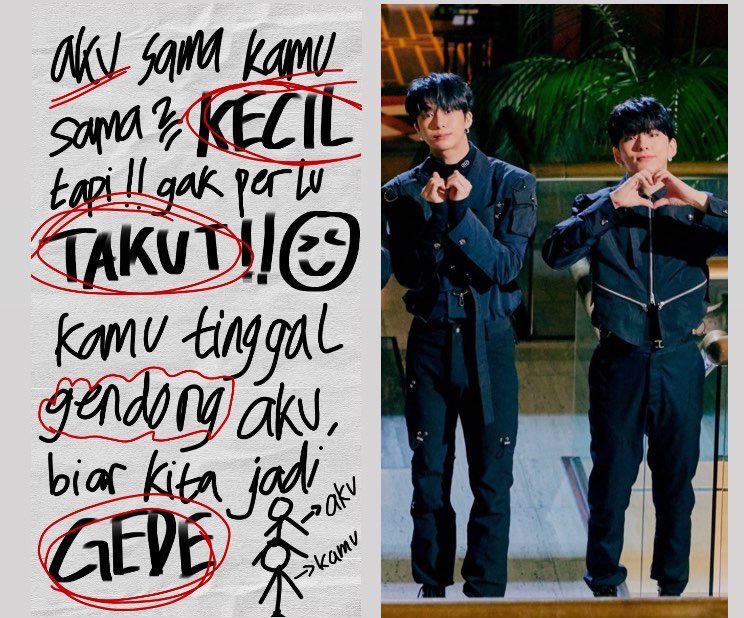 aku sama kamu
sama² KECIL
tapi!! gak perlu
TAKUT!!
kamu tinggal
gendong aku,
biar kita jadi
GEDE
aku
kamu